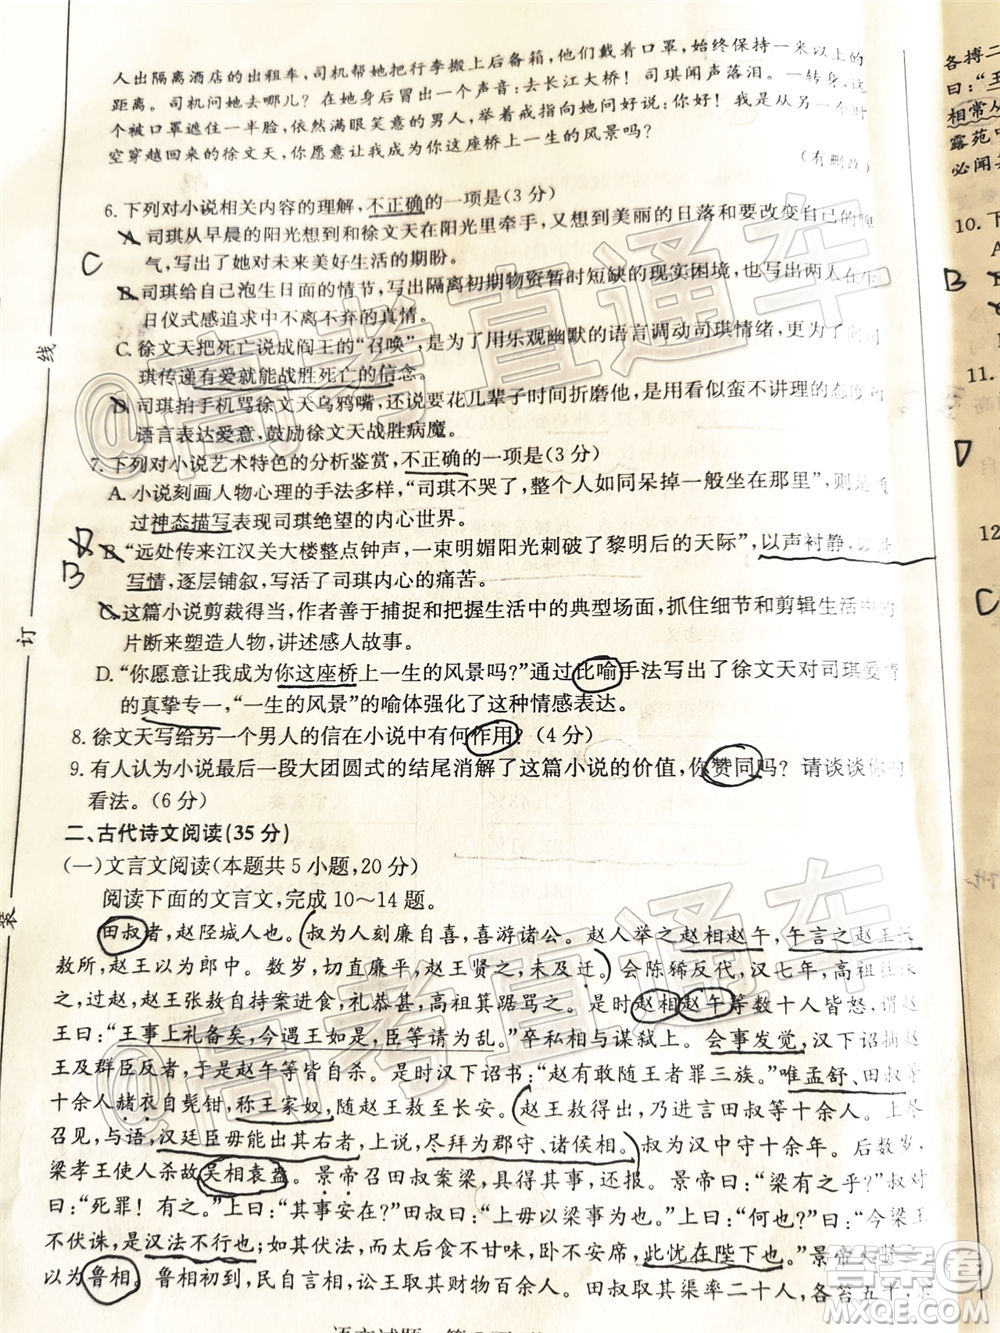 人出隔离酒店的出租车,司机帮她把行李搬上后备箱,他们戴着口罩,始终保持一米以上的
距离。司机问她去哪儿?在她身后有一个声音:去长江大桥!司琪闻声落泪。一转身,这
个被口罩遮住一半脸,依然满眼笑意的男人,举着戒指向她问好说:你好!我是从另一个时
空穿越回来的徐文天,你愿意让我成为你这座桥上一生的风景吗?
(有删改)
6. 下列对小说相关内容的理解,不正确的一项是(3 分)
A. 司琪从早晨的阳光想到和徐文天在阳光里牵手,又想到美丽的日落和要改变自己的脾
气,写出了她对未来美好生活的期盼。
C
B. 司琪给自己泡生日面的情节,写出隔离初期物资暂时短缺的现实困境,也写出了在
日仪式感追求中不离不弃的真情。
C. 徐文天把死亡说成阎王的“召唤”,是为了用乐观幽默的语言调动司琪情绪,更为了
琪传递有爱就能战胜死亡的信念。
D. 司琪拍手机骂徐文天乌鸦嘴,还说要花几辈子时间折磨他,是用看似蛮不讲理的态度
语言表达爱意,鼓励徐文天战胜病魔。
7. 下列对小说艺术特色的分析鉴赏,不正确的一项是(3 分)
A. 小说刻画人物心理的手法多样,“司琪不哭了,整个人如同呆掉一般坐在那里”,则
过神态描写表现司琪绝望的内心世界。
B. “远处传来江汉关大楼整点钟声,一束明媚阳光刺破了黎明后的天际”,以声衬静,以
B
写情,逐层铺叙,写出了司琪内心的痛苦。
C. 这篇小说剪裁得当,作者善于捕捉和把握生活中的典型场面,抓住细节和剪辑生活中的
片断来塑造人物,讲述感人故事。
D. “你愿意让我成为你这座桥上一生的风景吗?”通过比喻手法写出了徐文天对司琪爱情
的真挚专一,“一生的风景”的喻体强化了这种情感表达。
8. 徐文天写给另一个男人的信在小说中有何作用?(4 分)
9. 有人认为小说最后一段大团圆式的结尾消解了这篇小说的价值,你赞同吗?请谈谈你的
看法。(6 分)
二、古代诗文阅读(35 分)
(一)文言文阅读(本题共 5 小题,20 分)
阅读下面的文言文,完成 10～14 题。
田叔者,赵陉城人也。叔为人刻廉自喜,喜游诸公。赵人举之赵相赵午,午言之赵王张
敖所,赵王以为郎中。数岁,切直廉平,赵王贤之,未及迁。会陈豨反代,汉七年,高祖往诛
之,过赵,赵王张敖自持案进食,礼恭甚,高祖箕踞骂之。是时赵相赵午等数十人皆怒,谓赵
王曰:“王事上礼备矣,今遇王如是,臣等请为乱。”卒私相与谋弑上。会事发觉,汉下诏捕赵
王及群臣反者,于是赵午等皆自杀,唯贯高就系。是时汉下诏书:“赵有敢随王者罪三族。”唯孟舒、田叔等
十余人赭衣自髡钳,称王家奴,随赵王敖至长安。赵王敖得出,乃进言田叔等十余人。上尽
召见,与语,汉廷臣毋能出其右者,上说,尽拜为郡守、诸侯相。叔为汉中守十余年。后数岁,
梁孝王使人杀故吴相袁盎。景帝召田叔案梁,具得其事,还报。景帝曰:“梁有之乎?”叔对
曰:“死罪!有之。”上曰:“其事安在?”田叔曰:“上毋以梁事为也。”上曰:“何也?”曰:“今梁王
不伏诛,是汉法不行也;如其伏法,而太后食不甘味,卧不安席,此忧在陛下也。”景帝大贤之,
以为鲁相。鲁相初到,民自言相,讼王取其财物百余人。田叔取其渠率二十人,各笞五十,余
线
订
装
各搏二
曰:“王
相常从
露苑中
必闻其
10. 下
A
B
11.
D
自
12
C
@高考直通车
@高考直通车
答案圈
MXQE.COM